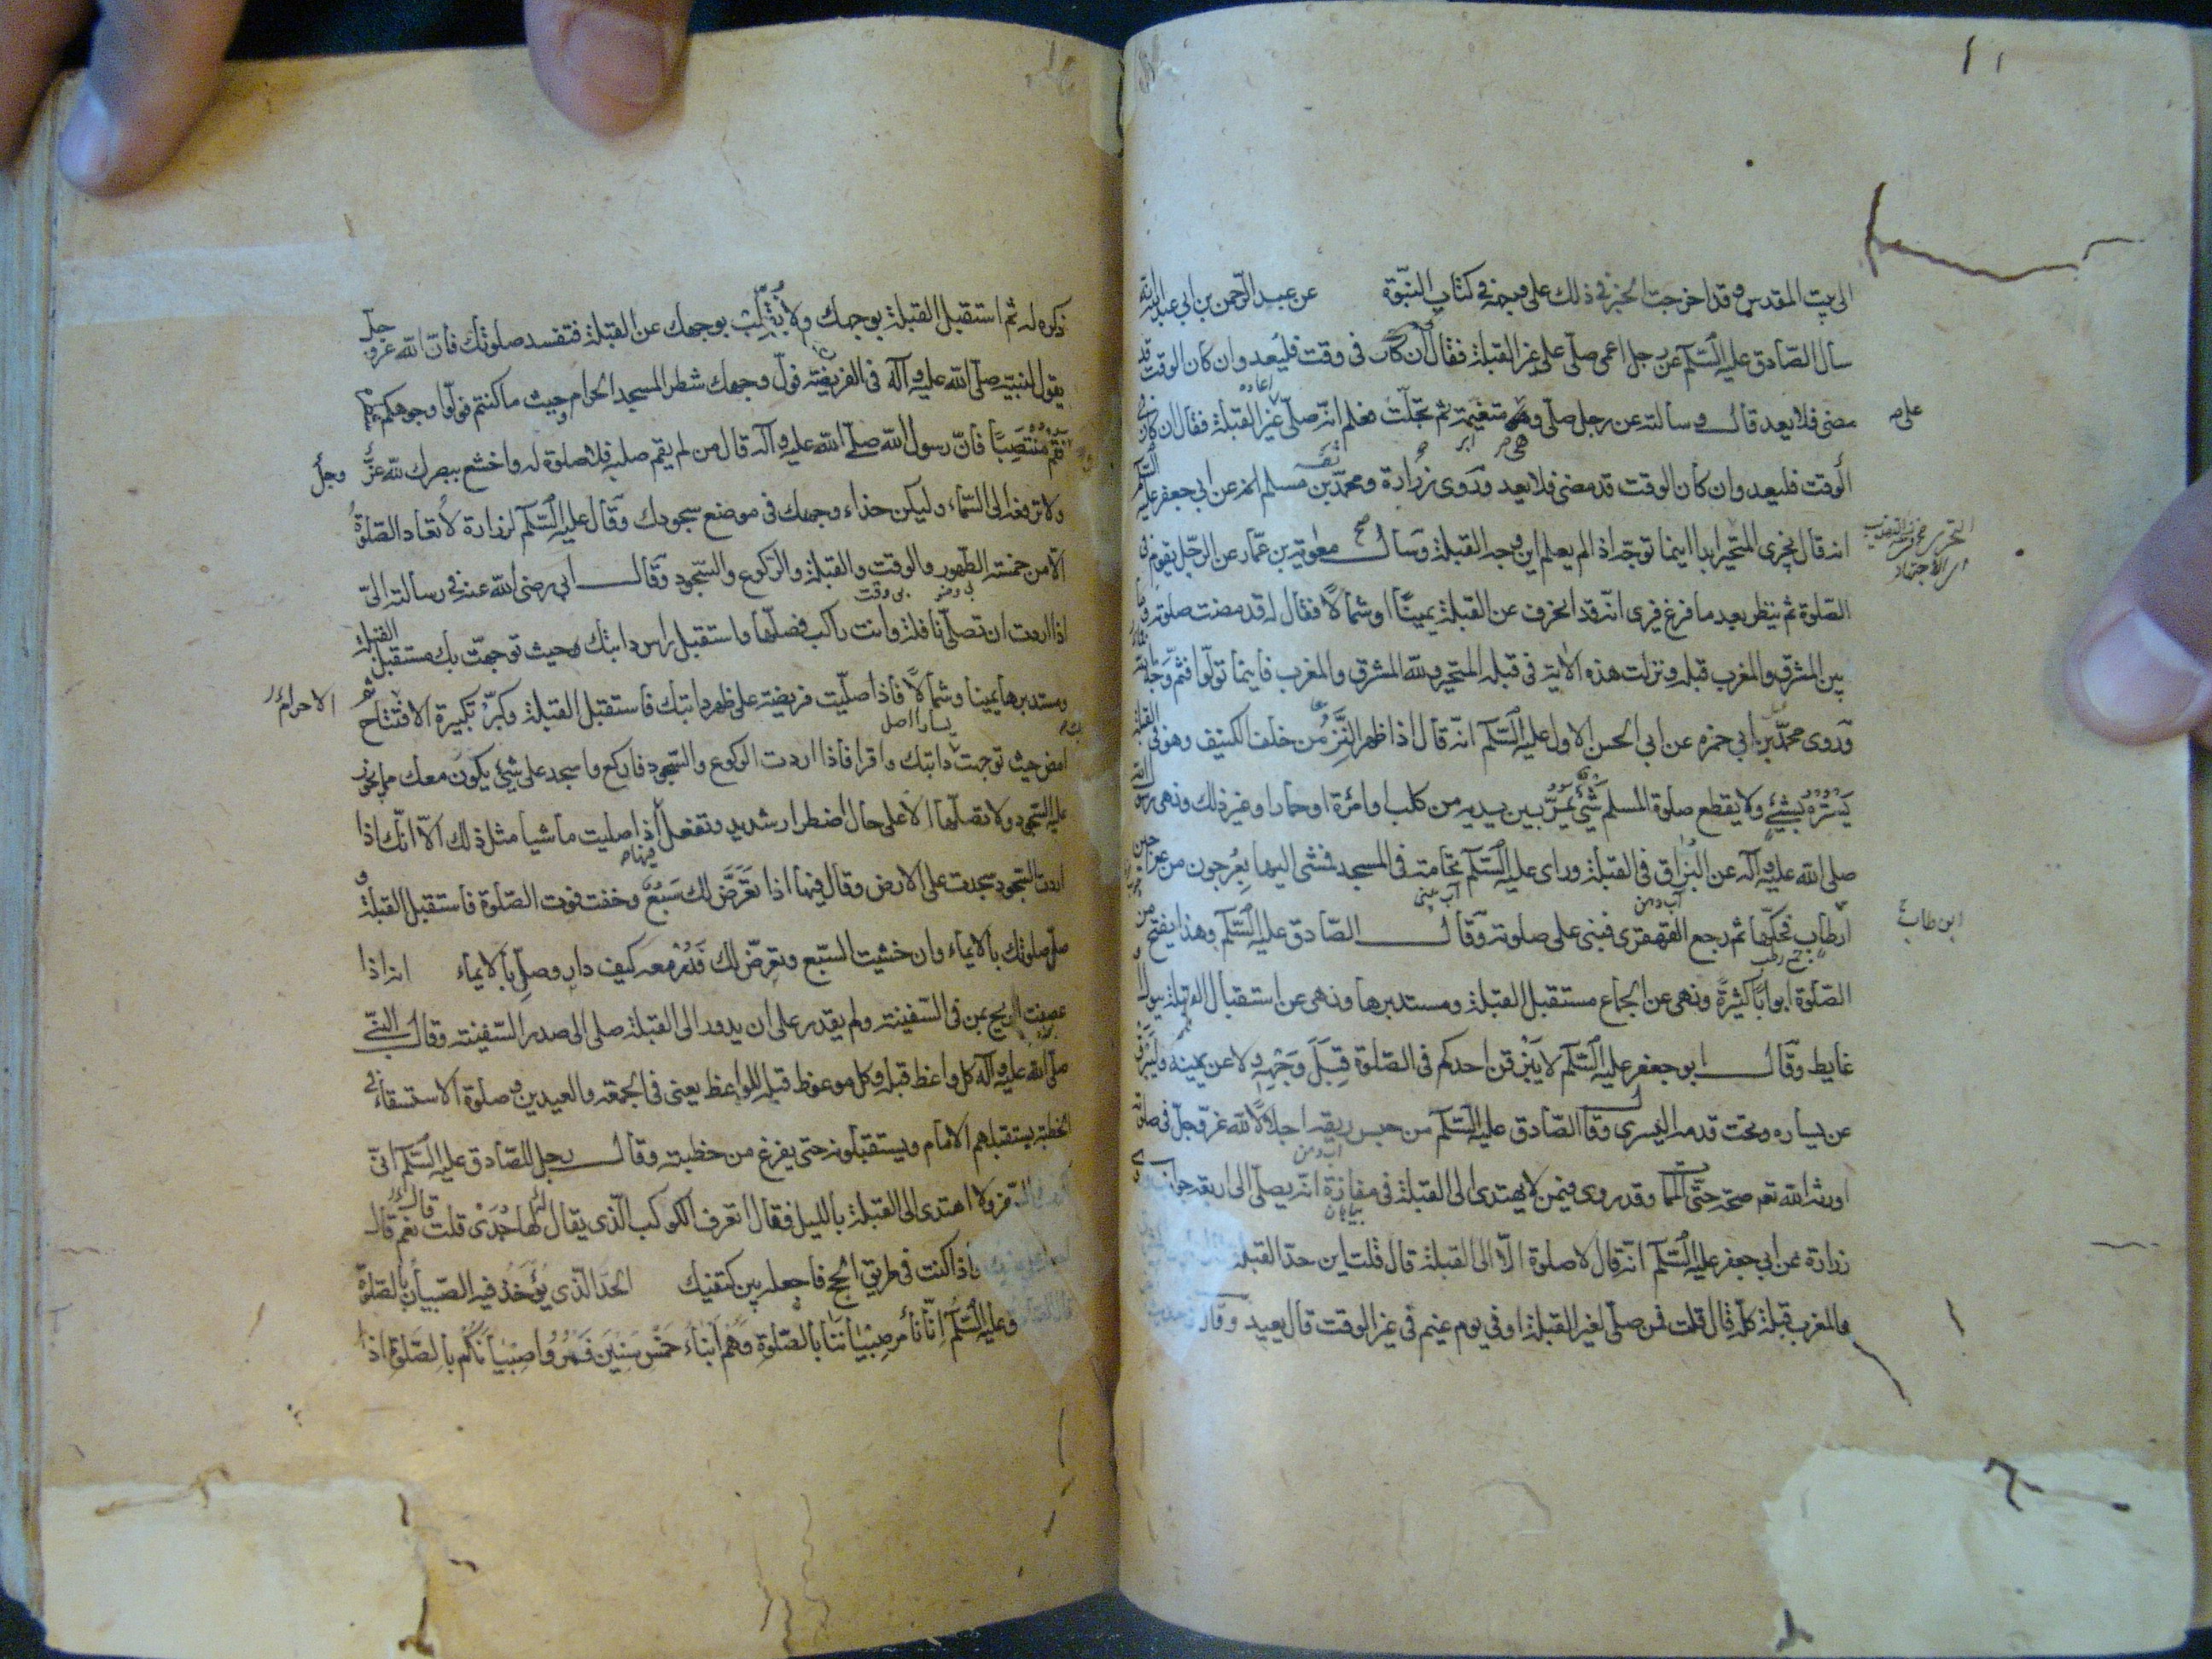 الى بيت المقدس وقد اخرجت الخبر في ذلك على وجهه في كتاب النبوة عن عبد الرحمن بن ابي عبد الله انه
سأل الصّادق عليه السّلم عن رجل اعمى صلّى على غير القبلة فقال ان كان في وقت فليعد وان كان الوقت قد
مضى فلا يعد قال وسالته عن رجل صلّى وهي متغيمة ثم تجلّت فعلم انّه صلّى غير القبلة فقال ان كان في
الوقت فليعد وان كان الوقت قد مضى فلا يعد وروى زرارة ومحمّد بن مسلم عن ابي جعفر عليه السّلم
انه قال يجزى المتحير ابدا اينما توجّه اذا لم يعلم اين وجه القبلة وسأل معوية بن عمّار عن الرّجل يقوم في
الصّلوة ثم ينظر بعد ما فرغ فيرى انّه قد انحرف عن القبلة يمينًا او شمالًا فقال له قد مضت صلوته وما
بين المشرق والمغرب قبلة ونزلت هذه الاية في قبلة المتحير ولله المشرق والمغرب فاينما تولّوا فثمّ وجه الله
وروى محمّد بن ابي حمزة عن ابي الحسن الاول عليه السّلم انّه قال اذا ظهر النّزّ من خلف الكنيف وهو في القبلة
يستره بشيئ ولا يقطع صلوة المسلم شيئ يمرّ بين يديه من كلب او امرأة او حمار او غير ذلك ونهى رسول الله
صلى الله عليه وآله عن البزاق في القبلة وراى عليه السّلم نخامة في المسجد فمشى اليها بعرجون من عراجين
ارطاب فحكّها ثم رجع القهقرى فبنى على صلوته وقال الصّادق عليه السّلم وهذا يفتح من
الصّلوة ابوابًا كثيرةً ونهى عن الجماع مستقبل القبلة ومستدبرها ونهى عن استقبال القبلة ببول
غايط وقال ابو جعفر عليه السّلم لا يبزقن احدكم في الصّلوة قِبَلَ وَجْهِهِ ولا عن يمينه وليبزق
عن يساره وتحت قدمه اليسرى وقال الصّادق عليه السّلم من حبس ريقه اجلالًا لله عزّ وجلّ في صلوته
اورثه الله تعم صحة حتّى الممات وقد روى فيمن لا يهتدى الى القبلة في مفازة انّه يصلّى الى اربعة جوانب
زرارة عن ابي جعفر عليه السّلم انّه قال لا صلوة الّا الى القبلة قال قلت اين حدّ القبلة
والمغرب قبلة كلّه قال قلت فمن صلّى لغير القبلة او في يوم غيم في غير الوقت قال يعيد وقال
على
ابن طاب
ذكره له ثم استقبل القبلة بوجهك ولا تقلّب بوجهك عن القبلة فتفسد صلوتك فانّ الله عزّ وجلّ
يقول لنبيّه صلّى الله عليه وآله في الفريضة فولّ وجهك شطر المسجد الحرام وحيث ما كنتم فولّوا وجوهكم
فقم منتصبًا فانّ رسول الله صلّى الله عليه وآله قال من لم يقم صلبه فلا صلوة له واخشع ببصرك لله عزّ وجلّ
ولا ترفعه الى السّماء وليكن حذاء وجهك في موضع سجودك وقال عليه السّلم لزرارة لا تعاد الصّلوة
الّا من خمسة الطّهور والوقت والقبلة والرّكوع والسّجود وقال ابي رضى الله عنه في رسالته الىّ
اذا اردت ان تصلّى نافلة وانت راكب فصلّها واستقبل راس دابتك حيث توجهّت بك مستقبل القبلة
ومستدبرها يمينا وشمالًا فاذا صلّيت فريضة على ظهر دابتك فاستقبل القبلة وكبّر تكبيرة الافتتاح ثم
امض حيث توجهت دابتك واقرا فاذا اردت الركوع والسّجود فاركع واسجد على شيئ يكون معك مما يجوز
عليه السّجود ولا تصلّها الّا على حال اضطرار شديد وتفعل اذا صليت ماشيا مثل ذلك الّا انّك اذا
اردت السّجود سجدت على الارض وقال فيها اذا تعرّض لك سَبُعٌ وخفت فوت الصّلوة فاستقبل القبلة و
صلّ صلوتك بالايماء وان خشيت السّبع وتعرّض لك فَدُرْ معه كيف دار وصلّ بالايماء انه اذا
عصفت الريح بمن في السّفينة ولم يقدر على ان يدور الى القبلة صلى الى صدر السّفينة وقال النبيّ
صلّى الله عليه وآله كل واعظ قبلة وكل موعوظ قبلة للواعظ يعنى في الجمعة والعيدين وصلوة الاستسقاء في
الخطبة يستقبلهم الامام ويستقبلونه حتى يفرغ من خطبته وقال رجل للصّادق عليه السّلم انّى
ولا اهتدى الى القبلة بالليل فقال اتعرف الكوكب الّذى يقال لها جُدَىْ قلت نعم قال
واذا كنت في طريق الحج فاجعله بين كتفيك الحدّ الّذى يُؤْخَذُ فيه الصّبيان بالصّلوة
وعليه السّلم انّا نأمر صبياننا بالصّلوة وهم ابناء خمس سنين فمروا صبيانكم بالصّلوة اذا
الاحرام